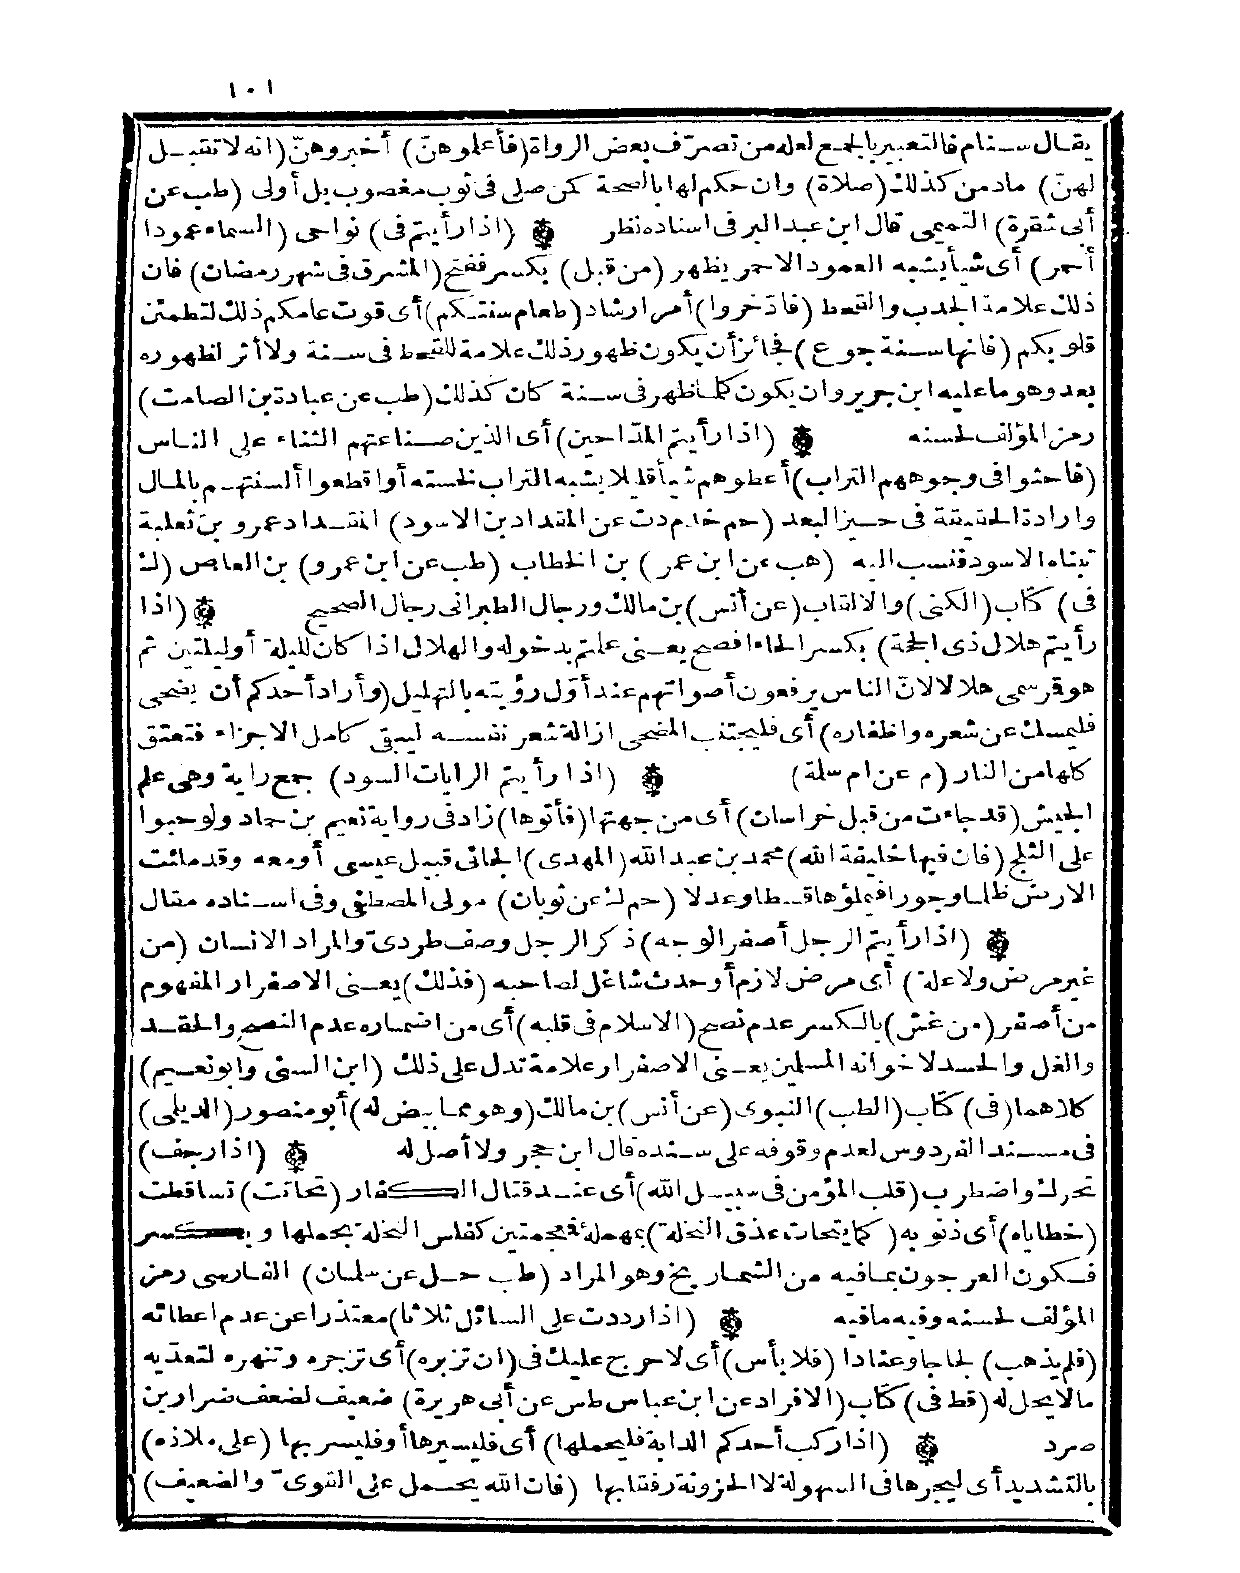 ١٠١
يقال سنام فالتعبير بالجمع لعله من تصرّف بعض الرواة (فأعلوهنّ) أخبروهنّ (انه لا تقبل
لهنّ) مادمن كذلك (صلاة) وان حكم لها بالصحة كمن صلى فى ثوب مغصوب بل أولى (طب عن
أبى شقرة) التميمى قال ابن عبد البر فى اسناده نظر (اذا رأيتم فى) نواحى (السماء عمودا
أحمر) أى شيأ يشبه العمود الاحمر يظهر (من قبل) بكسر ففتح (المشرق فى شهر رمضان) فان
ذلك علامة الجدب والقحط (فادّخروا) أمر ارشاد (طعام سنتكم) أى قوت عامكم ذلك لتطمئن
قلوبكم (فانها سنة جوع) فجائز أن يكون ظهور ذلك علامة للقحط فى سنة ولا أثر لظهوره
بعد وهو ما عليه ابن جرير وان يكون كلما ظهر فى سنة كان كذلك (طب عن عبادة بن الصامت)
رمز المؤلف لحسنه (اذا رأيتم المدّاحين) أى الذين صناعتهم الثناء على الناس
(فاحثوا فى وجوههم التراب) أعطوهم شيأ قليلا يشبه التراب لخسته أو اقطعوا ألسنتهم بالمال
وارادة الحقيقة فى حيز البعد (حم خد م د ت عن المقداد بن الاسود) المقداد عمرو بن ثعلبة
تبناه الاسود فنسب اليه (هب عن ابن عمر) بن الخطاب (طب عن ابن عمرو) بن العاص (ك
فى) كتاب (الكنى) والالقاب (عن أنس) بن مالك ورجال الطبرانى رجال الصحيح (اذا
رأيتم هلال ذى الحجة) بكسر الحاء افصح يعنى علمتم بدخوله والهلال اذا كان لليلة أوليلتين ثم
هو قمر سمى هلالا لانّ الناس يرفعون أصواتهم عند أوّل رؤيته بالتهليل (وأراد أحدكم أن يضحى
فليمسك عن شعره واظفاره) أى فليجتنب المضحى ازالة شعر نفسه ليبقى كامل الاجزاء فتعتق
كلها من النار (م عن ام سلة) (اذا رأيتم الرايات السود) جمع راية وهى علم
الجيش (قد جاءت من قبل خراسان) أى من جهتها (فأتوها) زاد فى رواية نعيم بن حماد ولو حبوا
على الثلج (فان فيها خليفة الله) محمد بن عبد الله (المهدى) الجائى قبيل عيسى أو معه وقد ملئت
الارض ظلما وجورا فيملؤها قسطا وعدلا (حم ك عن ثوبان) مولى المصطفى وفى اسناده مقال
(اذا رأيتم الرجل أصفر الوجه) ذكر الرجل وصف طردىّ والمراد الانسان (من
غير مرض ولا علة) أى مرض لازم أو حدث شاغل لصاحبه (فذلك) يعنى الاصفرار المفهوم
من أصفر (من غش) بالكسر عدم نصح (الاسلام فى قلبه) أى من اضماره عدم النصح والحقد
والغل والحسد لاخوانه المسلمين يعنى الاصفرار علامة تدل على ذلك (ابن السنى وابو نعيم)
كلاهما (فى) كتاب (الطب) النبوى (عن أنس) بن مالك (وهو مما بيض له) أبو منصور (الديلى)
فى مسند الفردوس لعدم وقوفه على سنده قال ابن حجر ولا أصل له (اذا رجف)
تحرك واضطرب (قلب المؤمن فى سبيل الله) أى عند قتال الكفار (تحاتت) تساقطت
(خطاياه) أى ذنوبه (كما يتحات عذق النخلة) بمهملة فمعجمتين كفلس النخلة بحملها وبكسر
فسكون العرجون بمافيه من الشماريخ وهو المراد (طب حل عن سلمان) الفارسى رمز
المؤلف لحسنه وفيه مافيه (اذا رددت على السائل ثلاثا) معتذرا عن عدم اعطائه
(فلم يذهب) لجاجا وعنادا (فلا بأس) أى لا حرج عليك فى (ان تزبره) أى تزجره وتنهره لتعدّيه
مالا يحل له (قط فى) كتاب (الافراد عن ابن عباس طس عن أبى هريرة) ضعيف لضعف ضرار بن
صرد (اذا ركب أحدكم الدابة فليحملها) أى فليسيرها أو فليسر بها (على ملاذه)
بالتشديد أى ليجرها فى السهولة لا الحزونة رفقا بها (فان الله يحمل على القوىّ والضعيف)